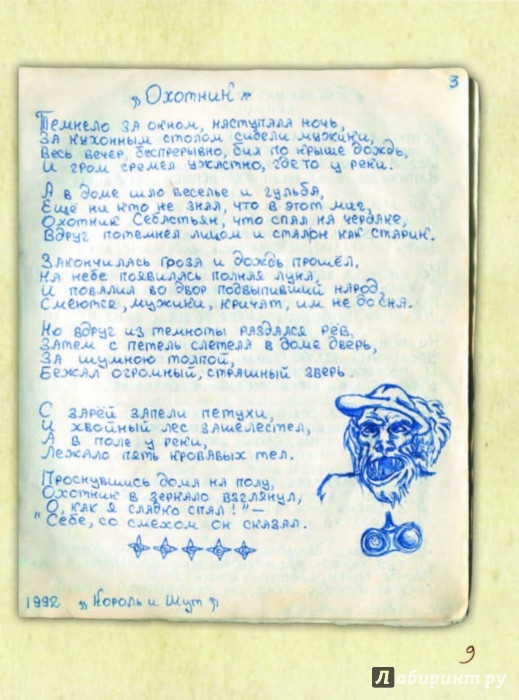 3
„Охотник"
Темнело за окном, наступала ночь,
За кухонным столом сидели мужики,
Весь вечер, беспрерывно, бил по крыше дождь,
И гром гремел ужастно, где то у реки.
А в доме шло веселье и гульба,
Ещё ни кто не знал, что в этот миг,
Охотник Себастьян, что спал на чердаке,
Вдруг потемнел лицом и стал он как старик.
Закончилась гроза и дождь прошёл,
На небе появилась полная луна,
И повалил во двор подвыпивший народ,
Смеются, мужики, кричат, им не до сна.
Но вдруг из темноты раздался рёв,
Затем с петель слетела в доме дверь,
За шумною толпой,
Бежал огромный, страшный зверь.
С зарёй запели петухи,
И хвойный лес зашелестел,
А в поле у реки,
Лежало пять кровавых тел.
Проснувшись дома на полу,
Охотник в зеркало взглянул,
„О, как я сладко спал!"–
Себе, со смехом он сказал.
1992 „Король и Шут"
9
Лабиринт.ру